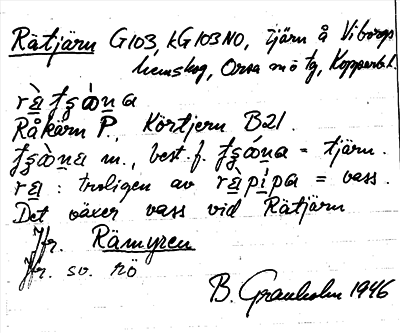 Rätjärn G103, kG103NO, tjärn å Viborgs
hemskog, Orsa mö tg, Kopparb.l.
Råkärn P, Körtjern B21.
m., best. f. = tjärn.
: troligen av = vass.
Det växer vass vid Rätjärn
Jfr. Rämyren
Jfr. sv. rö
B. Granholm 1946